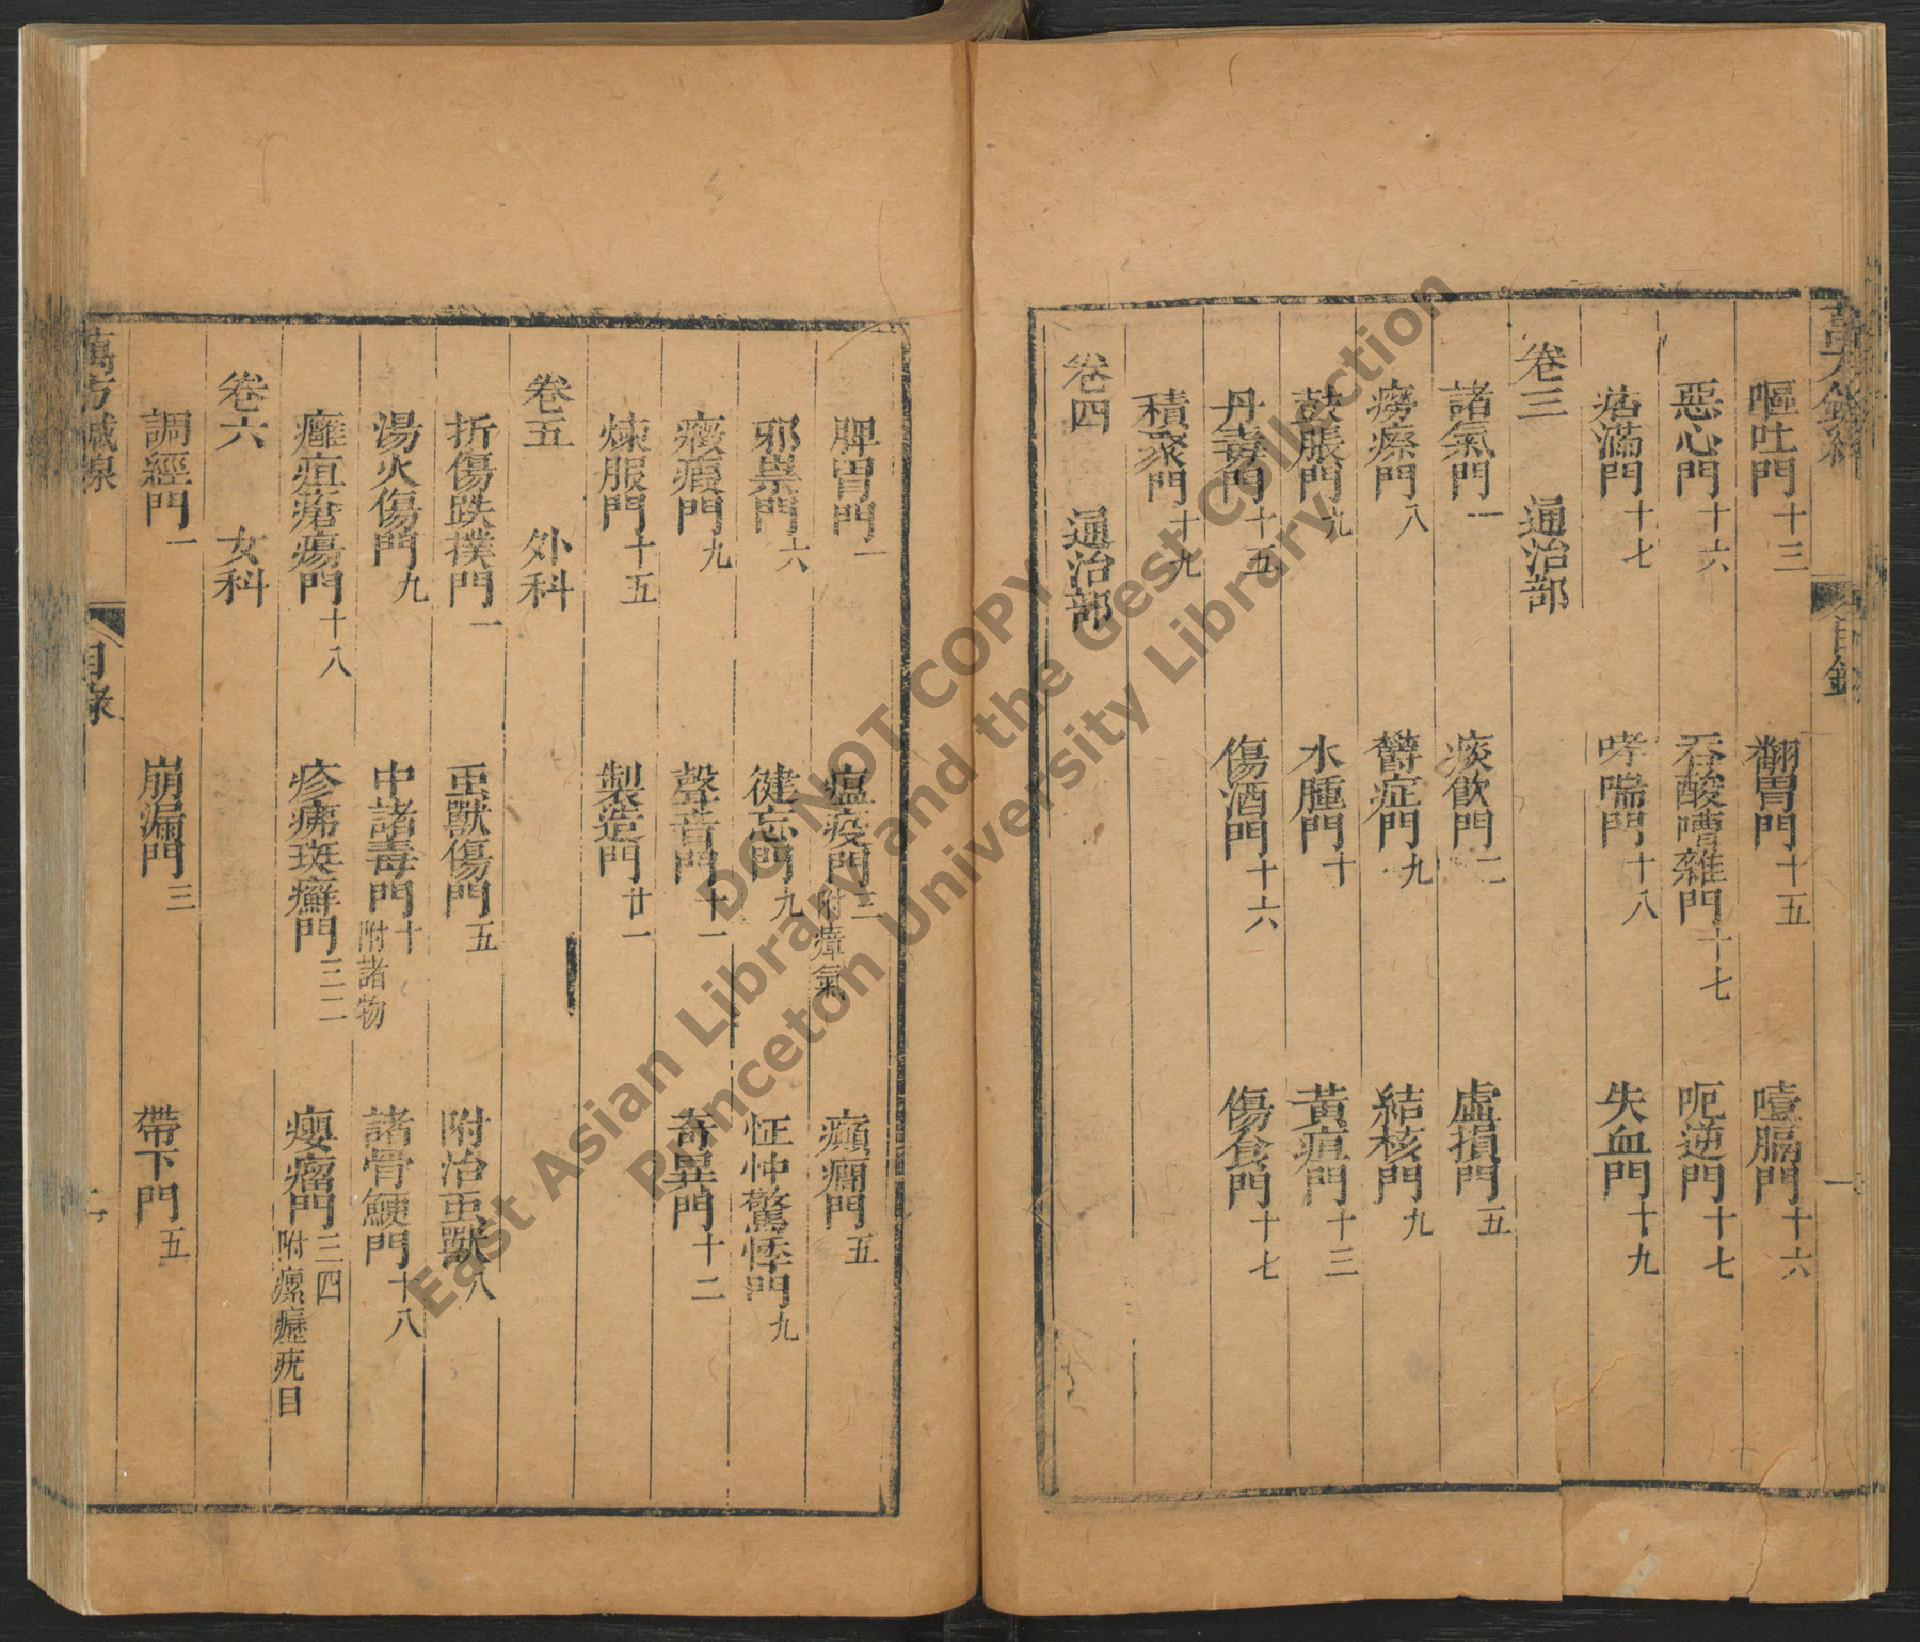 嘔吐門十三　翻胃門十五　噎膈門十六
惡心門十六　吞酸嘈雜門十七　呃逆門十七
痞滿門十七　哮喘門十八　失血門十九
卷三　通治部
諸氣門一　痰飲門二　虛損門五
癆瘵門八　鬱症門九　結核門九
鼓脹門九　水腫門十　黃疸門十三
丹毒門十五　傷酒門十六　傷食門十七
積聚門十九
卷四　通治部
目錄
一
脾胃門一　瘟疫門三附瘴氣　癲癇門五
邪祟門六　健忘門九　怔忡驚悸門九
癥瘕門九　聲音門十一　奇異門十二
煉服門十五　製造門廿一
卷五　外科
折傷跌撲門一　虫獸傷門五　附治虫獸八
湯火傷門九　中諸毒門十附諸物　諸骨鯁門十八
癰疽瘡瘍門十八　疹疿斑癬門三二　癭瘤門三四附瘰癧疣目
卷六　女科
調經門一　崩漏門三　帶下門五
萬方鍼線
目錄
二
DO NOT COPY
East Asian Library and the Gest Collection
Princeton University Library